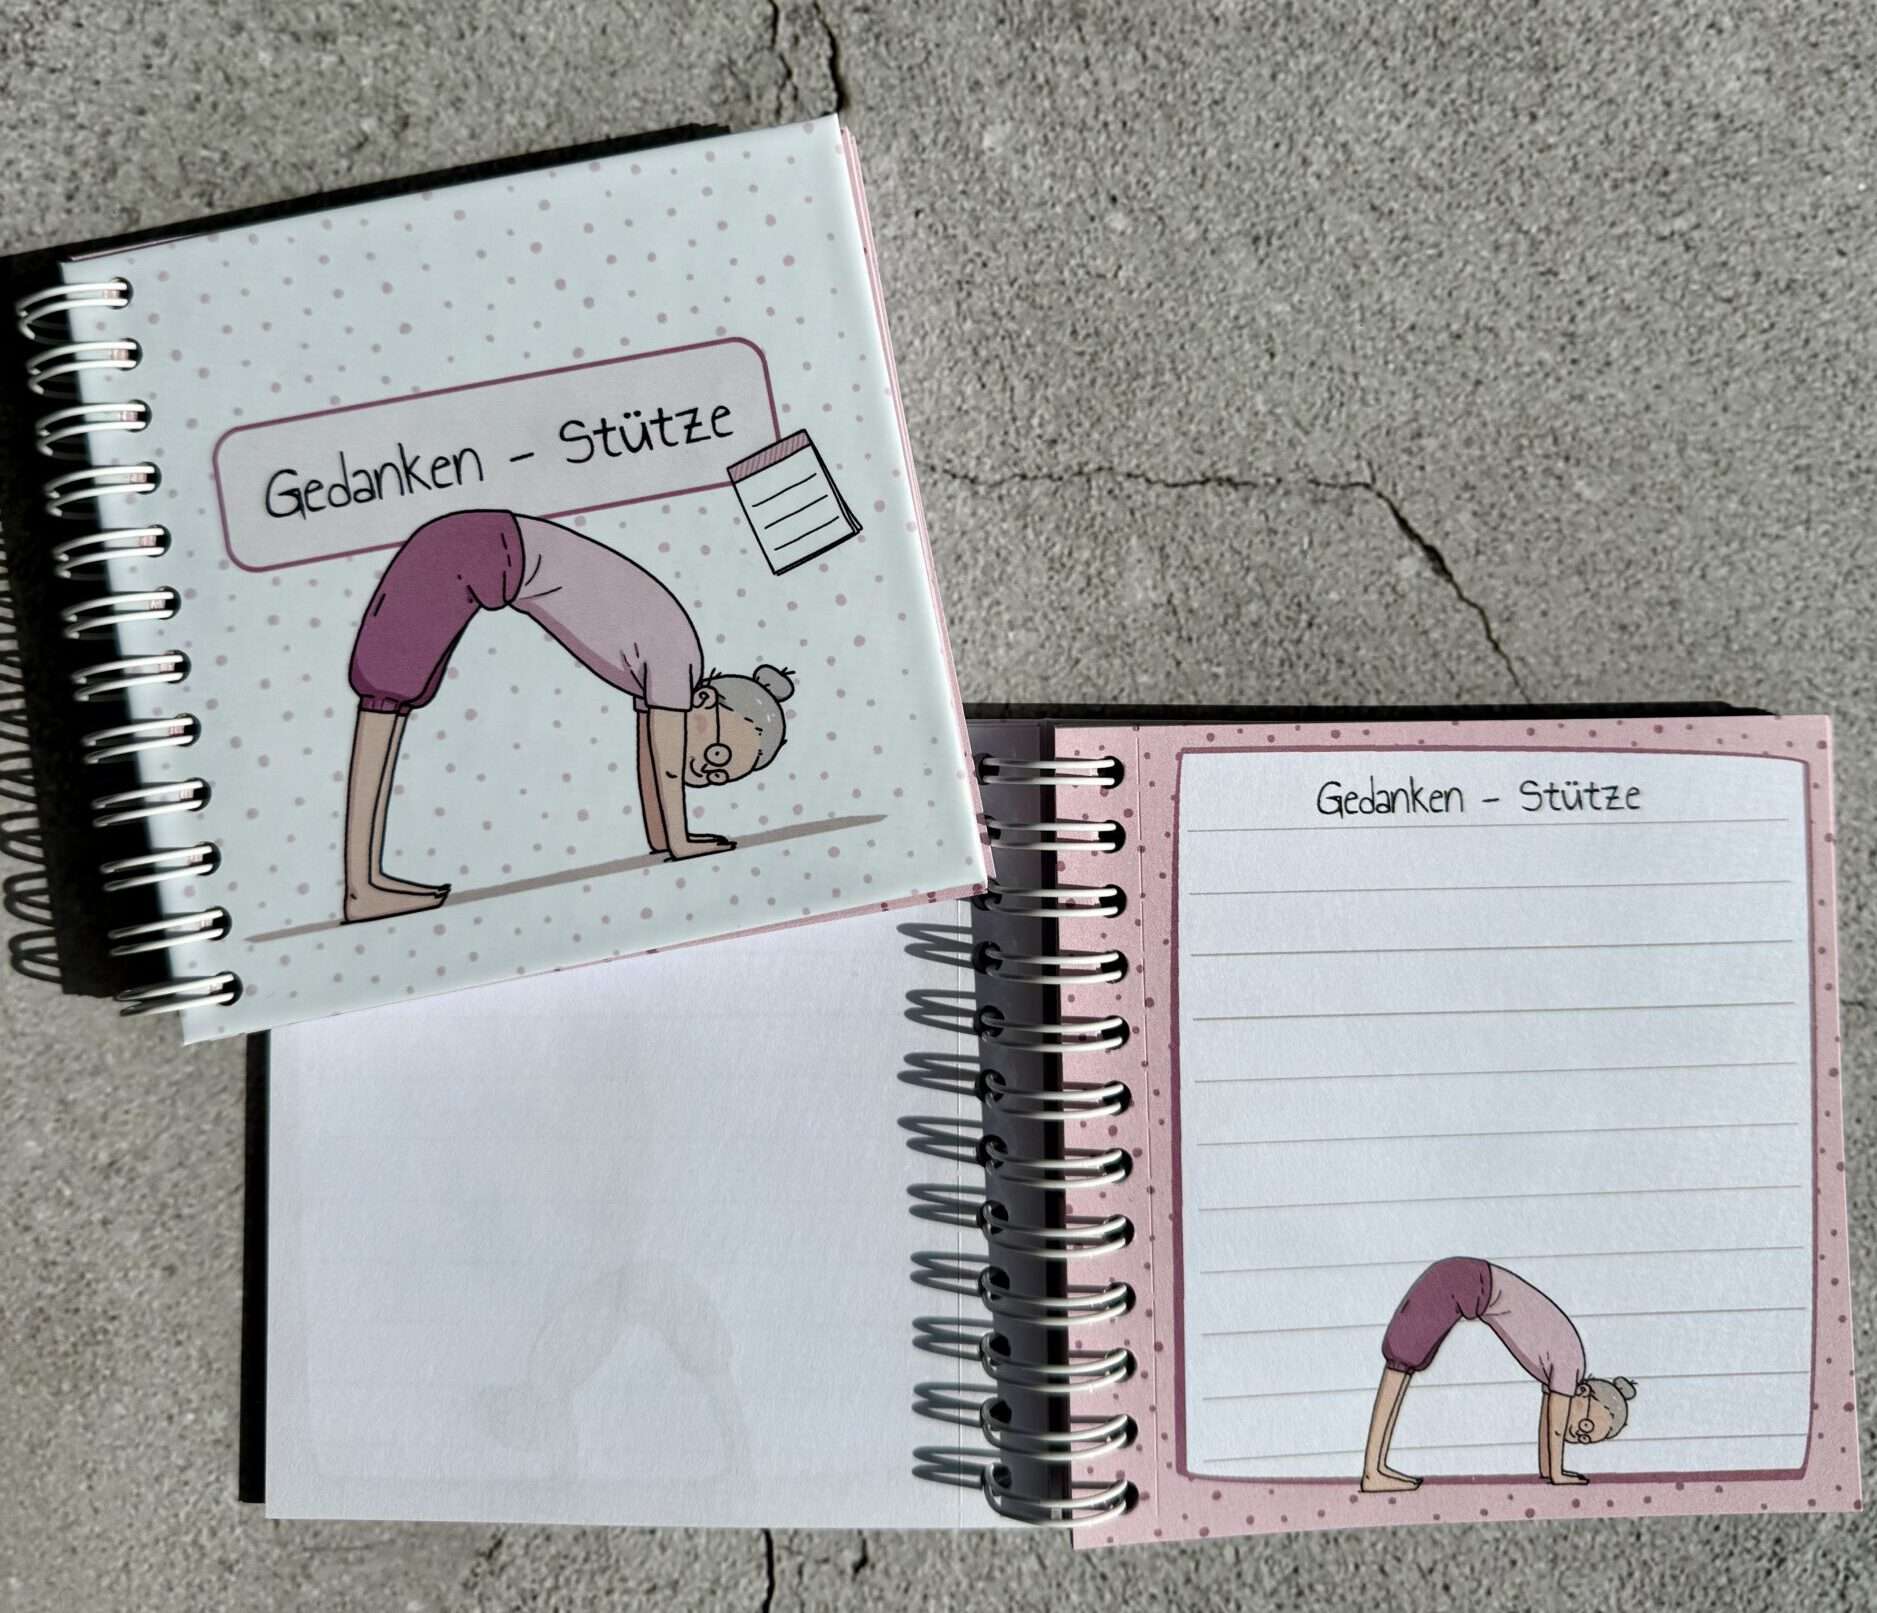 Gedanken - Stütze
Gedanken - Stütze